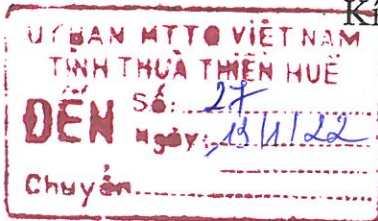 Kí
ỦY BAN MTTQ VIỆT NAM
TỈNH THỪA THIÊN HUẾ
ĐẾN Số: 27
Ngày: 13/1/22
Chuyển